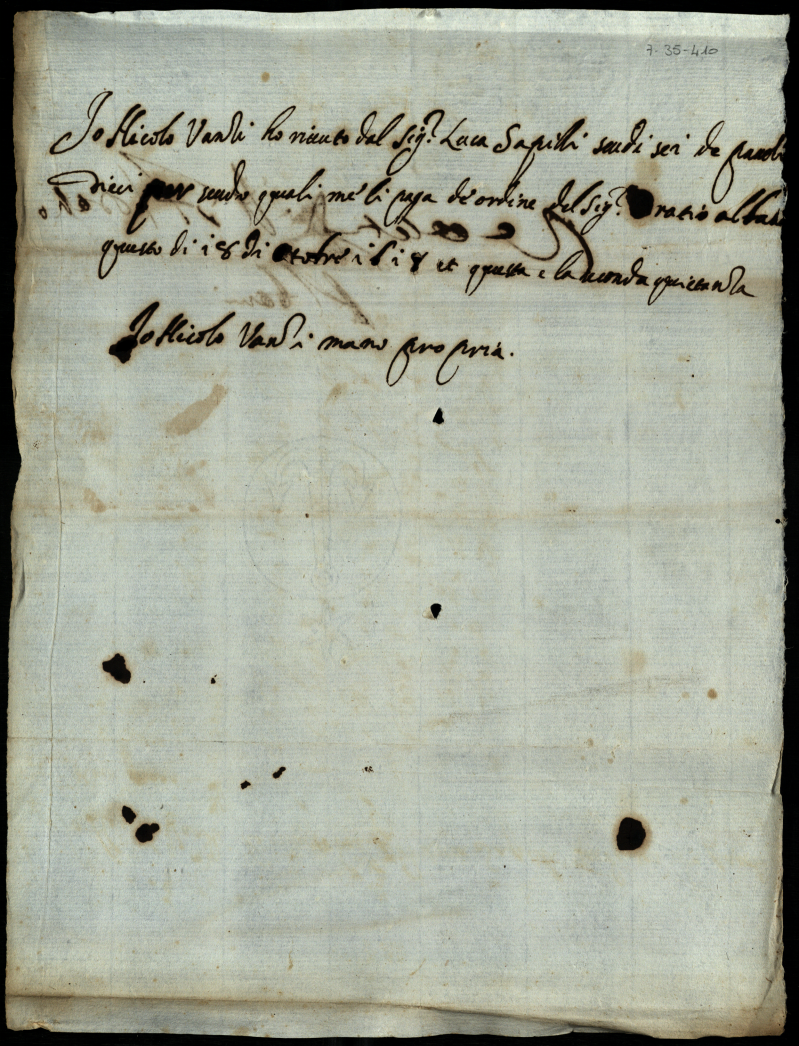 7-35-410
Io Nicolo Vandi ho riceuto dal Sig.r Luca scudi sei de paoli
dieci per scudo quali me li paga de ordine del Sig.r Oratio alban
questo di 18 di Ottobre 1618 et questa e la seconda quietanza
Io Nicolo Vandi mano propria.